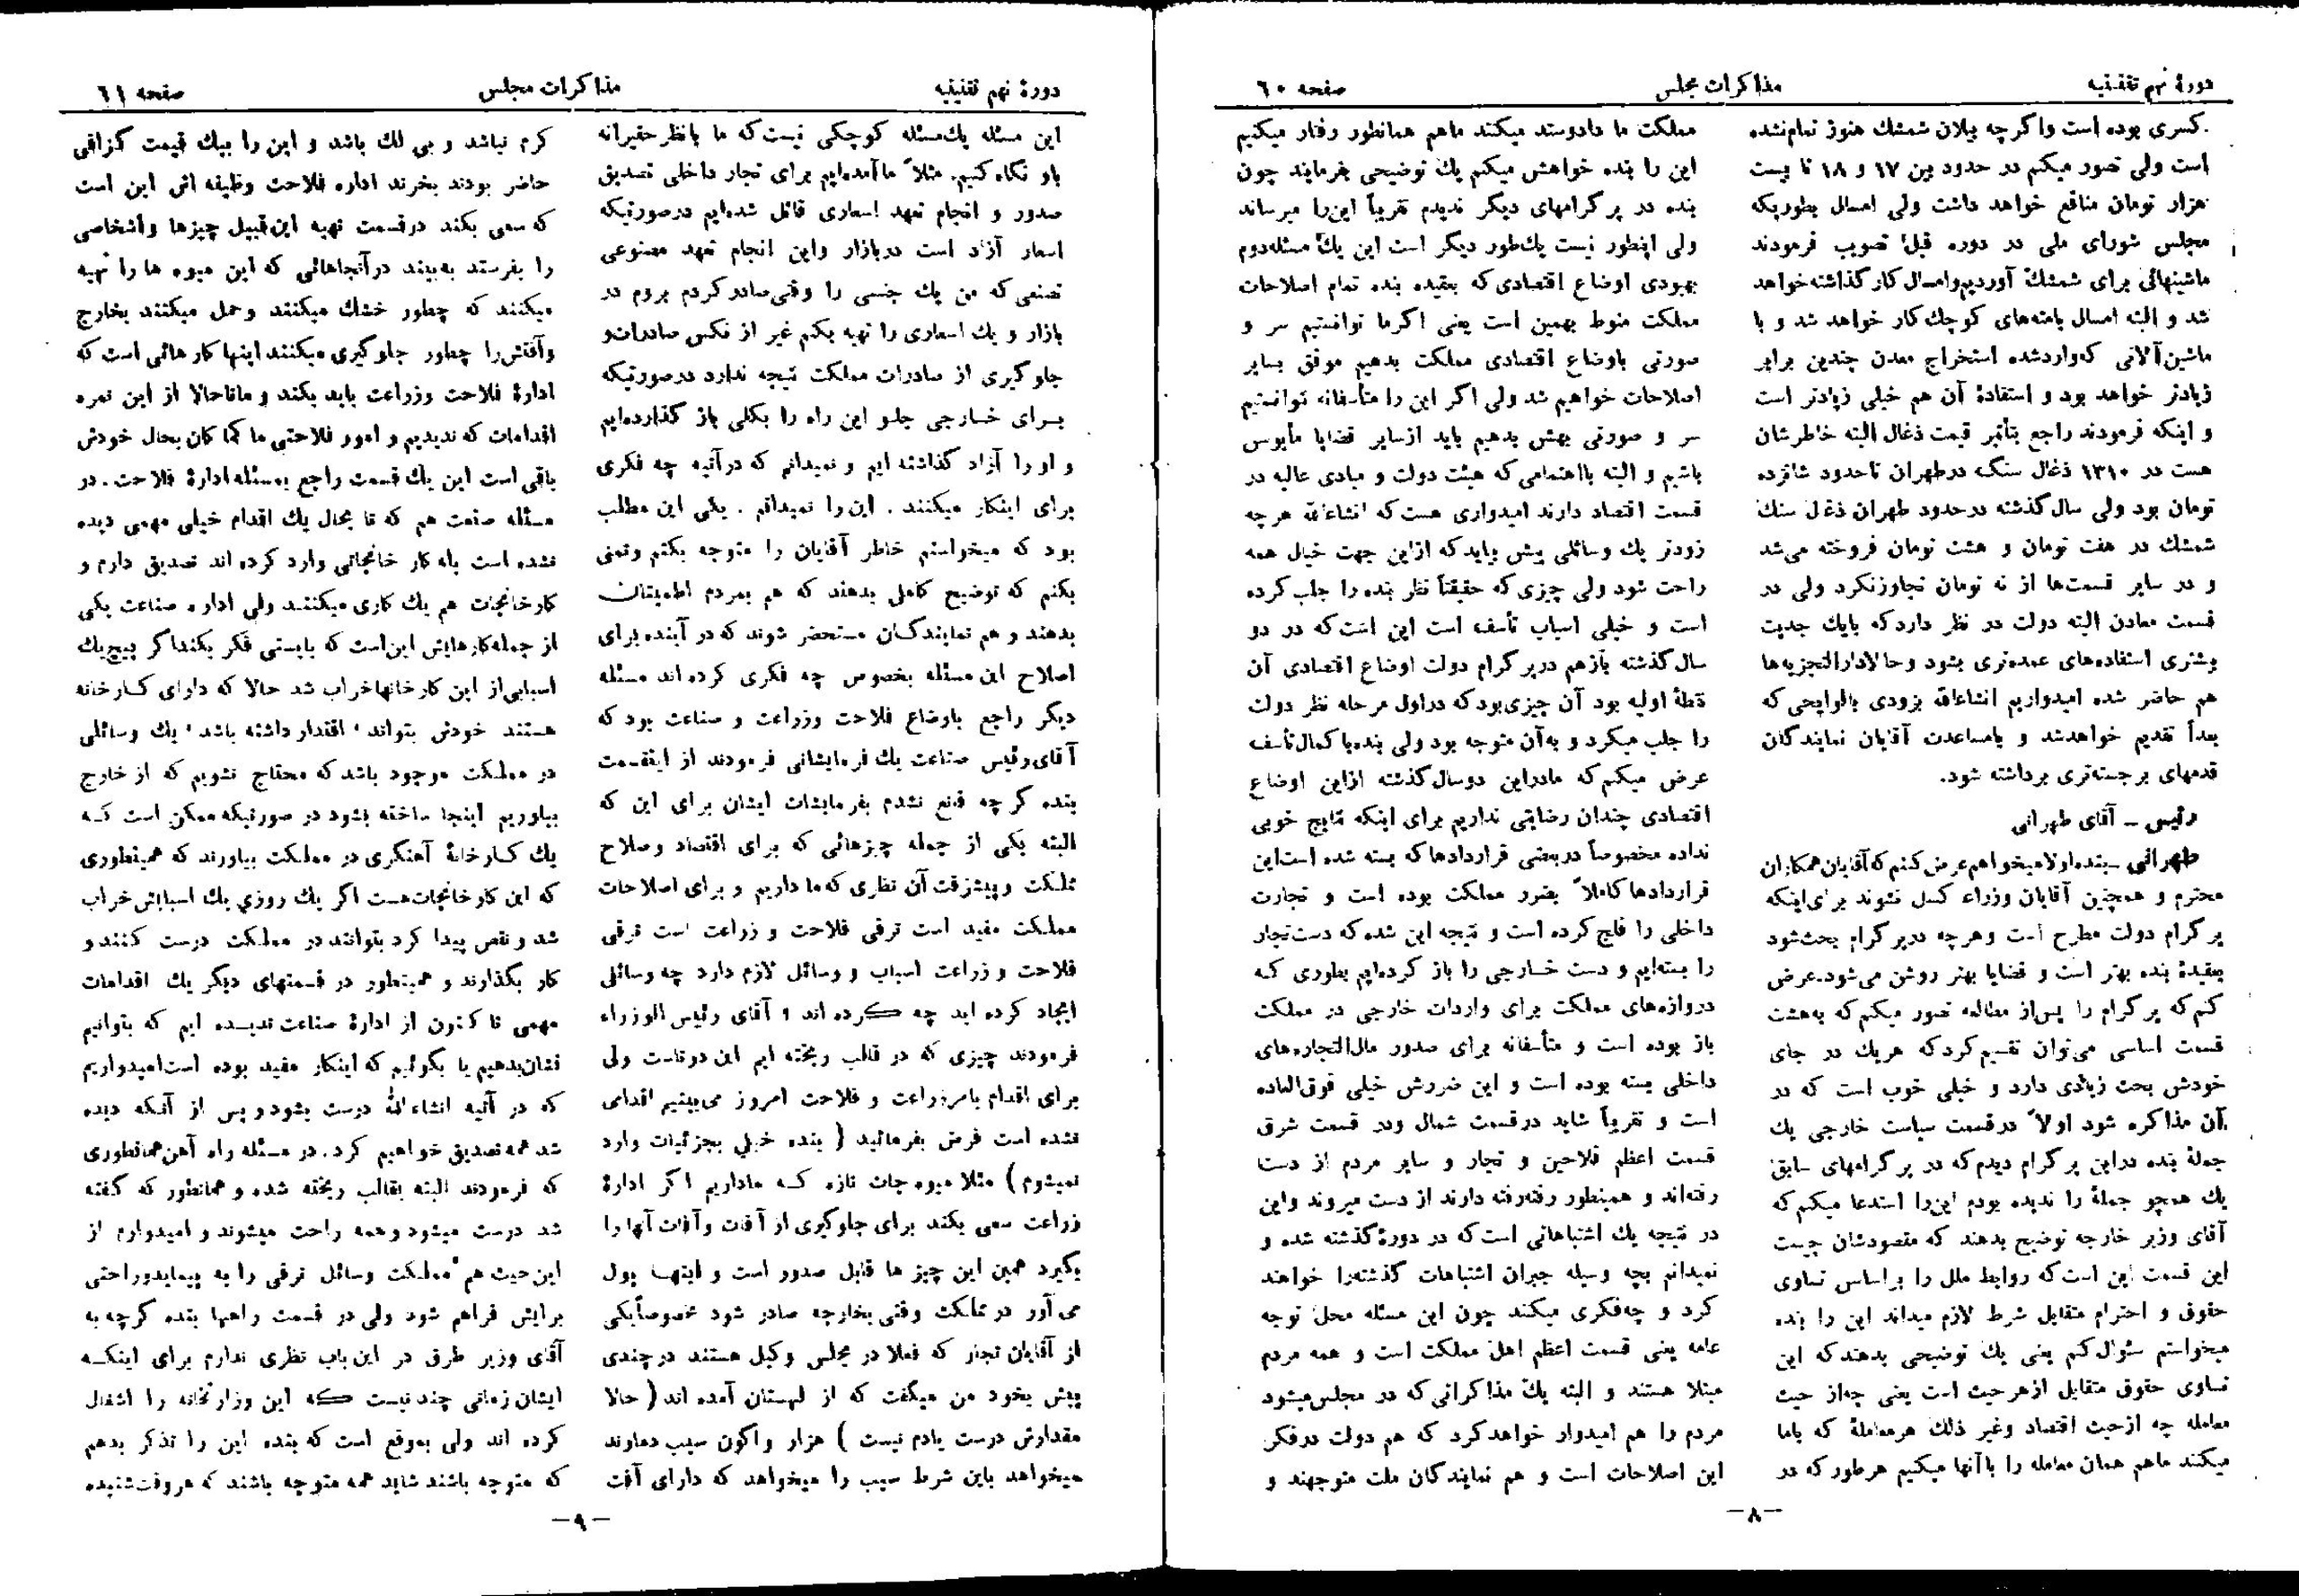 دورهٔ نهم تقنینیه
مذاکرات مجلس
صفحه ۶۰
کسری بوده است واگرچه بیلان شمشك هنوز تمام‌نشده
است ولی تصور میکنم در حدود بین ۱۷ و ۱۸ تا بیست
هزار تومان منافع خواهد داشت ولی امسال بطوریکه
مجلس شورای ملی در دوره قبل تصویب فرمودند
ماشینهائی برای شمشك آوردیم‌وامسال کار گذاشته‌خواهد
شد و البته امسال بامته‌های کوچك کار خواهد شد و با
ماشین‌آلاتی که‌واردشده استخراج معدن چندین برابر
زیادتر خواهد بود و استفادهٔ آن هم خیلی زیادتر است
و اینکه فرمودند راجع بتأثیر قیمت ذغال البته خاطرشان
هست در ۱۳۱۰ ذغال سنگ درطهران تاحدود شانزده
تومان بود ولی سال گذشته درحدود طهران ذغال سنك
شمشك در هفت تومان و هشت تومان فروخته می‌شد
و در سایر قسمت‌ها از نه تومان تجاوزنکرد ولی در
قسمت معادن البته دولت در نظر دارد که بایك جدیت
بیشتری استفاده‌های عمده‌تری بشود وحالادارالتجزیه‌ها
هم حاضر شده امیدواریم انشاءالله بزودی بالوایحی که
بعداً تقدیم خواهدشد و بامساعدت آقایان نمایندگان
قدمهای برجسته‌تری برداشته شود.
رئیس ـ آقای طهرانی
طهرانی ـ بنده‌اولامیخواهم‌عرض‌کنم که‌آقایان‌همکاران
محترم و همچنین آقایان وزراء کسل نشوند برای‌اینکه
پرگرام دولت مطرح است وهرچه درپرگرام بحث‌شود
بعقیدهٔ بنده بهتر است و قضایا بهتر روشن می‌شود.عرض
کنم که پرگرام را پس‌از مطالعه تصور میکنم که به‌هشت
قسمت اساسی می‌توان تقسیم کرد که هریك در جای
خودش بحث زیادی دارد و خیلی خوب است که در
آن مذاکره شود اولاً درقسمت سیاست خارجی یك
جملهٔ بنده دراین پرگرام دیدم که در پرگرامهای سابق
یك همچو جملهٔ را ندیده بودم این‌را استدعا میکنم که
آقای وزیر خارجه توضیح بدهند که مقصودشان چیست
این قسمت این است که روابط ملل را براساس تساوی
حقوق و احترام متقابل شرط لازم میداند این را بنده
میخواستم سئوال کنم یعنی یك توضیحی بدهند که این
تساوی حقوق متقابل ازهرحیث است یعنی چه‌از حیث
معامله چه ازحیث اقتصاد وغیر ذلك هرمعاملهٔ که باما
میکنند ماهم همان معامله را باآنها میکنیم هرطور که در
مملکت ما دادوستد میکنند ماهم همانطور رفتار میکنیم
این را بنده خواهش میکنم یك توضیحی بفرمایند چون
بنده در پرگرامهای دیگر ندیدم تقریباً این‌را میرساند
ولی اینطور نیست یك‌طور دیگر است این یك مسئله‌دوم
بهبودی اوضاع اقتصادی که بعقیده بنده تمام اصلاحات
مملکت منوط بهمین است یعنی اگرما توانستیم سر و
صورتی باوضاع اقتصادی مملکت بدهیم موفق بسایر
اصلاحات خواهیم شد ولی اگر این را متأسفانه نتوانستیم
سر و صورتی بهش بدهیم باید ازسایر قضایا مأیوس
باشیم و البته بااهتمامی که هیئت دولت و مبادی عالیه در
قسمت اقتصاد دارند امیدواری هست که انشاءالله هرچه
زودتر یك وسائلی پیش بیاید که ازاین جهت خیال همه
راحت شود ولی چیزی که حقیقتاً نظر بنده را جلب کرده
است و خیلی اسباب تأسف است این است که در دو
سال گذشته بازهم درپرگرام دولت اوضاع اقتصادی آن
نقطهٔ اولیه بود آن چیزی‌بود که دراول مرحله نظر دولت
را جلب میکرد و به‌آن متوجه بود ولی بنده‌با کمال‌تأسف
عرض میکنم که مادراین دوسال گذشته ازاین اوضاع
اقتصادی چندان رضایتی نداریم برای اینکه نتایج خوبی
نداده مخصوصاً دربعضی قراردادها که بسته شده است‌این
قراردادها کاملاً بضرر مملکت بوده است و تجارت
داخلی را فلج کرده است و نتیجه این شده که دست‌تجار
را بسته‌ایم و دست خارجی را باز کرده‌ایم بطوری که
دروازه‌های مملکت برای واردات خارجی در مملکت
باز بوده است و متأسفانه برای صدور مال‌التجاره‌های
داخلی بسته بوده است و این ضررش خیلی فوق‌العاده
است و تقریباً شاید درقسمت شمال ودر قسمت شرق
قسمت اعظم فلاحین و تجار و سایر مردم از دست
رفته‌اند و همینطور رفته‌رفته دارند از دست میروند واین
در نتیجه یك اشتباهاتی است که در دورهٔ گذشته شده و
نمیدانم بچه وسیله جبران اشتباهات گذشته‌را خواهند
کرد و چه‌فکری میکند چون این مسئله محل توجه
عامه یعنی قسمت اعظم اهل مملکت است و همه مردم
مبتلا هستند و البته یك مذاکراتی که در مجلس‌میشود
مردم را هم امیدوار خواهد کرد که هم دولت درفکر
این اصلاحات است و هم نمایندگان ملت متوجهند و
ـ۸ـ
دورهٔ نهم تقنینیه
مذاکرات مجلس
صفحه ۶۱
این مسئله یك‌مسئله کوچکی نیست که ما بانظر حقیرانه
باو نگاه کنیم. مثلاً ماآمده‌ایم برای تجار داخلی تصدیق
صدور و انجام تعهد اسعاری قائل شده‌ایم درصورتیکه
اسعار آزاد است دربازار واین انجام تعهد مصنوعی
تصنعی که من یك جنسی را وقتی‌صادر کردم بروم در
بازار و یك اسعاری را تهیه بکنم غیر از نکس صادرات‌و
جلوگیری از صادرات مملکت نتیجه ندارد درصورتیکه
برای خارجی جلو این راه را بکلی باز گذارده‌ایم
و او را آزاد گذاشته ایم و نمیدانم که درآتیه چه فکری
برای اینکار میکنند . این را نمیدانم . یکی این مطلب
بود که میخواستم خاطر آقایان را متوجه بکنم وتمنی
بکنم که توضیح کامل بدهند که هم بمردم اطمینان
بدهند و هم نمایندگان مستحضر شوند که در آینده برای
اصلاح این مسئله بخصوص چه فکری کرده اند مسئله
دیگر راجع باوضاع فلاحت وزراعت و صناعت بود که
آقای رئیس صناعت یك فرمایشاتی فرمودند از اینقسمت
بنده گرچه قانع نشدم بفرمایشات ایشان برای این که
البته یکی از جمله چیزهائی که برای اقتصاد وصلاح
مملکت وپیشرفت آن نظری که‌ما داریم و برای اصلاحات
مملکت مفید است ترقی فلاحت و زراعت است ترقی
فلاحت و زراعت اسباب و وسائل لازم دارد چه وسائلی
ایجاد کرده اید چه کرده اند ؟ آقای رئیس الوزراء
فرمودند چیزی که در قالب ریخته ایم این درست ولی
برای اقدام بامرزراعت و فلاحت امروز می‌بینیم اقدامی
نشده است فرض بفرمائید ( بنده خیلی بجزئیات وارد
نمیشوم) مثلا میوه جات تازه که ماداریم اگر ادارهٔ
زراعت سعی بکند برای جلوگیری از آفات وآفات آنها را
بگیرد همین این چیز ها قابل صدور است و اینها پول
می آور در مملکت وقتی بخارجه صادر شود مخصوصاًیکی
از آقایان تجار که فعلا در مجلس وکیل هستند درچندی
پیش بخود من میگفت که از لهستان آمده اند ( حالا
مقدارش درست یادم نیست ) هزار واگون سیب دماوند
میخواهد باین شرط سیب را میخواهد که دارای آفت
کرم نباشد و بی لك باشد و این را بیك قیمت گزافی
حاضر بودند بخرند اداره فلاحت وظیفه اش این است
که سعی بکند درقسمت تهیه این‌قبیل چیزها واشخاصی
را بفرستد به‌بیند درآنجاهائی که این میوه ها را تهیه
میکنند که چطور خشك میکنند وحمل میکنند بخارج
وآفتش‌را چطور جلوگیری میکنند اینها کار هائی است که
ادارهٔ فلاحت وزراعت باید بکند و ماتاحالا از این نمره
اقدامات که ندیدیم و امور فلاحتی ما کما کان بحال خودش
باقی است این یك قسمت راجع بمسئله ادارهٔ فلاحت . در
مسئله صنعت هم که تا بحال یك اقدام خیلی مهمی دیده
نشده است بله کار خانجاتی وارد کرده اند تصدیق دارم و
کارخانجات هم یك کاری میکنند ولی اداره صناعت یکی
از جمله‌کارهایش این‌است که بایستی فکر بکنداگر پیچ‌یك
اسبابی‌از این کارخانهاخراب شد حالا که دارای کارخانه
هستند خودش بتواند ، اقتدار داشته باشد ، یك وسائلی
در مملکت موجود باشد که محتاج نشویم که از خارج
بیاوریم اینجا ساخته بشود در صورتیکه ممکن است که
یك کارخانهٔ آهنگری در مملکت بیاورند که همینطوری
که این کارخانجات‌هست اگر یك روزی یك اسبابش خراب
شد و نقص پیدا کرد بتوانند در مملکت درست کنند و
کار بگذارند و همینطور در قسمتهای دیگر یك اقدامات
مهمی تا کنون از ادارهٔ صناعت ندیده ایم که بتوانیم
نشان‌بدهیم یا بگوئیم که اینکار مفید بوده است‌امیدواریم
که در آتیه انشاءالله درست بشود و پس از آنکه دیده
شد همه تصدیق خواهیم کرد . در مسئله راه آهن همانطوری
که فرمودند البته بقالب ریخته شده و همانطور که گفته
شد درست میشود وهمه راحت میشوند و امیدوارم از
این‌حیث هم مملکت وسائل ترقی را به پیماید‌وراحتی
برایش فراهم شود ولی در قسمت راهها بنده گرچه به
آقای وزیر طرق در این باب نظری ندارم برای اینکه
ایشان زمانی چند نیست که این وزارتخانه را اشغال
کرده اند ولی بموقع است که بنده این را تذکر بدهم
که متوجه باشند شاید همه متوجه باشند که هروقت‌شنیده
ـ۹ـ